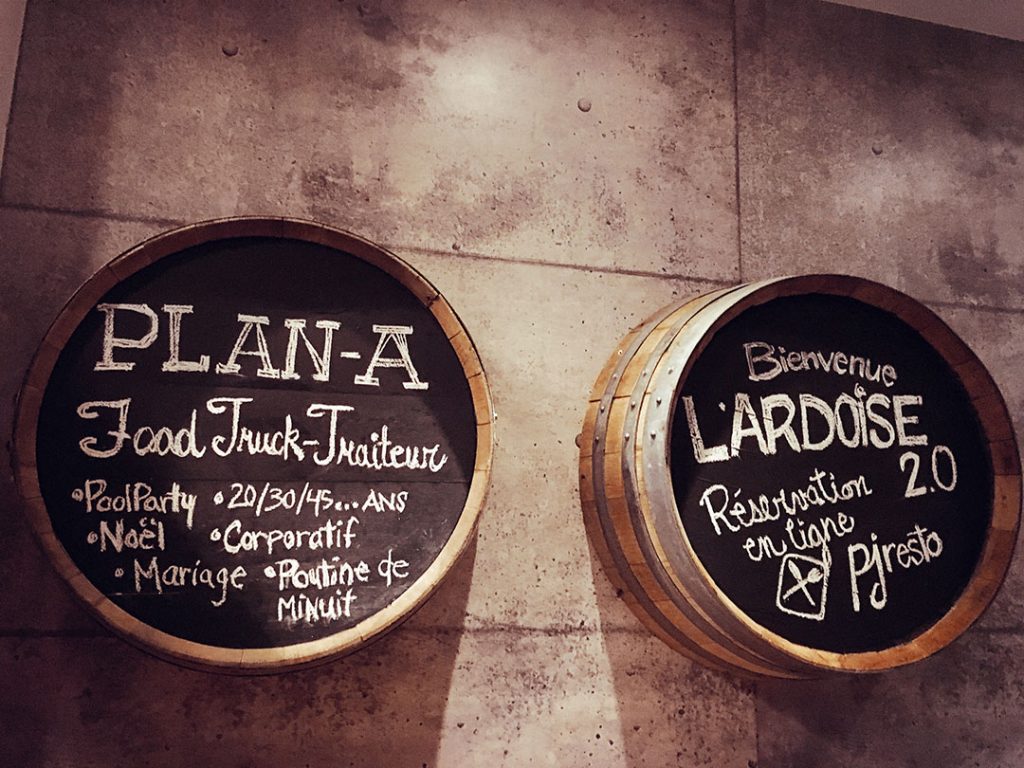 PLAN-A
Food Truck-Traiteur
•PoolParty •20/30/45...ANS
•Noël •Corporatif
•Mariage •Poutine de
MINUIT
Bienvenue
à
L'ARDOISE
2.0
Réservation
en ligne
pjresto